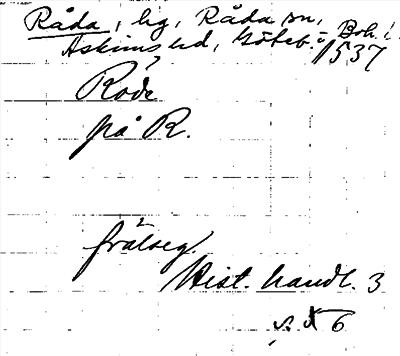 Råda, hg, Råda sn,
Askims hd, Göteb. o. Boh. l.
1537
Rode
på R.
frälseg.
Hist. handl. 3
s. 6